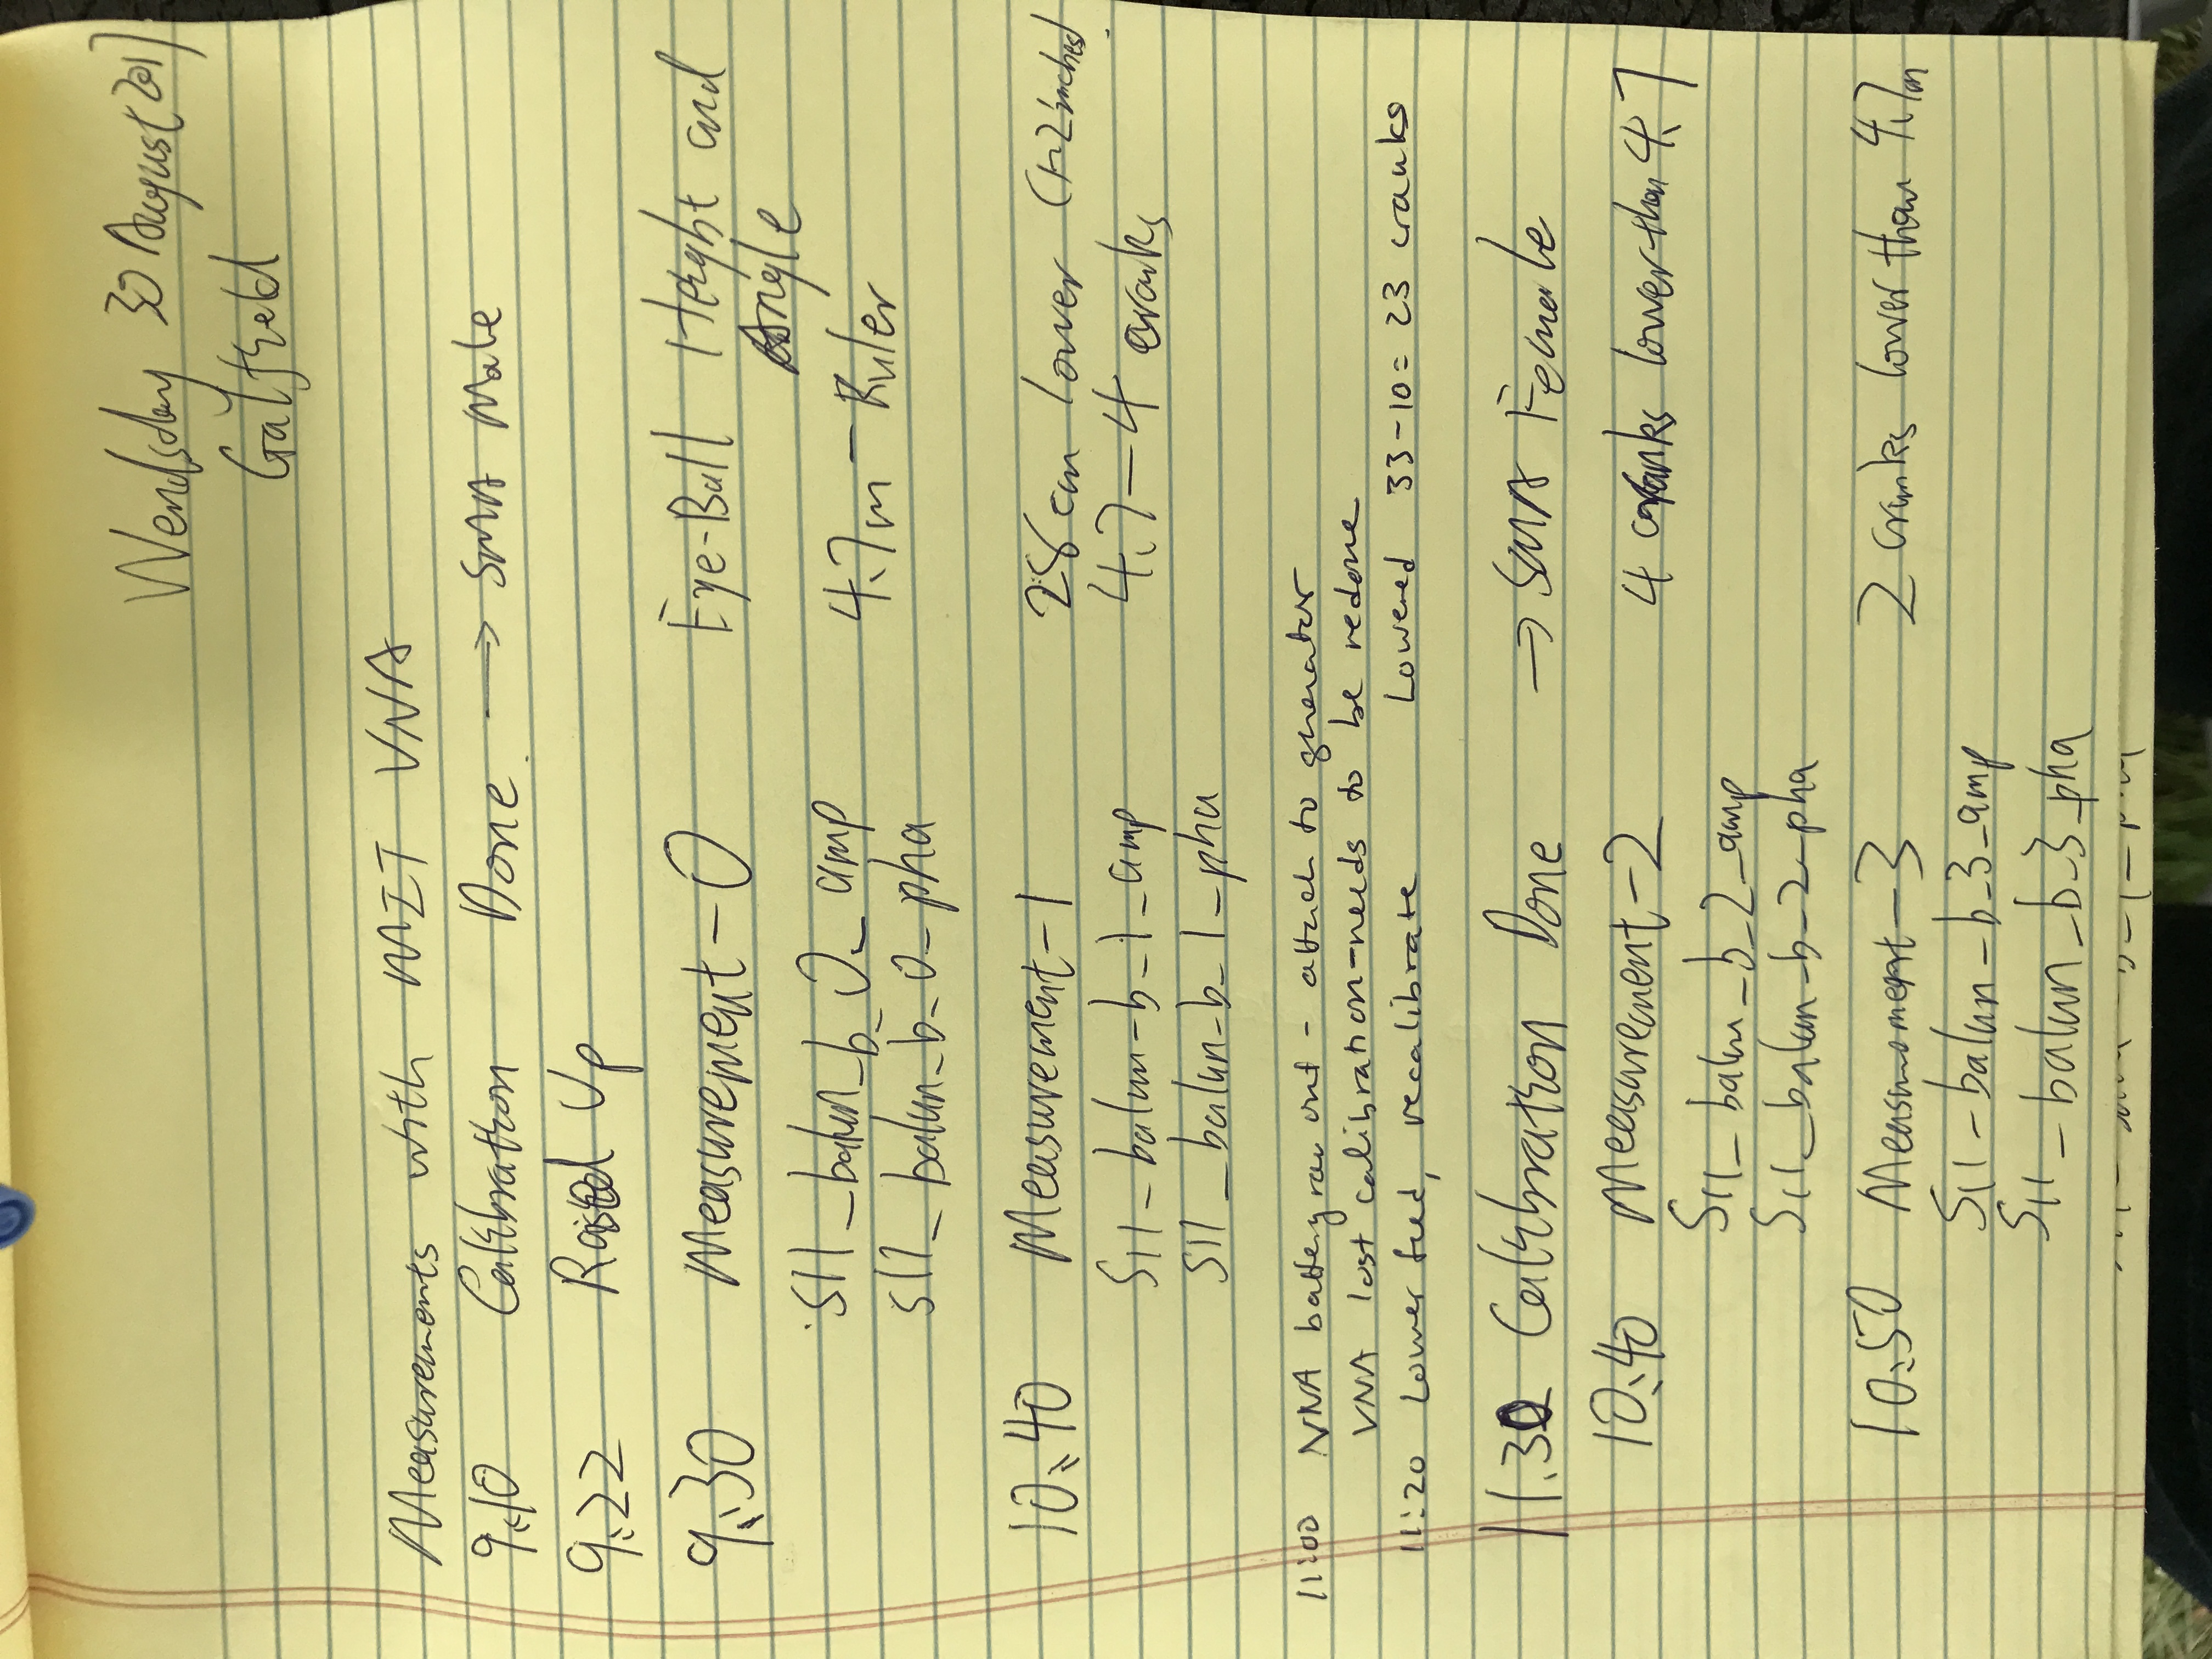 Wendsday 30 August 2017
Galfield
Measurements with MIT VNA
9:10 Calibration Done. → SMA Male
9:22 Raised Up
9:30 Measurement-0 Eye-Ball Height and
Angle
S11_balun_b_0_amp 4.7m - Ruler
S11_balun_b_0_pha
10:40 Measurement-1 28cm lower (1-2 inches)
S11_balun-b_1_amp 4.7-4 cranks
S11_balun-b_1_pha
11:00 VNA battery ran out - attach to generator
VNA lost calibration-needs to be redone
11:20 Lower feed, recalibrate Lowered 33-10=23 cranks
11.30 Calibration Done → SMA Female
10:40 Measurement-2 4 cranks lower than 4.7
S11_balun_b_2_amp
S11_balun_b_2_pha
10:50 Measurement-3 2 cranks lower than 4.7m
S11-balun_b_3_amp
S11_balun_b_3_pha